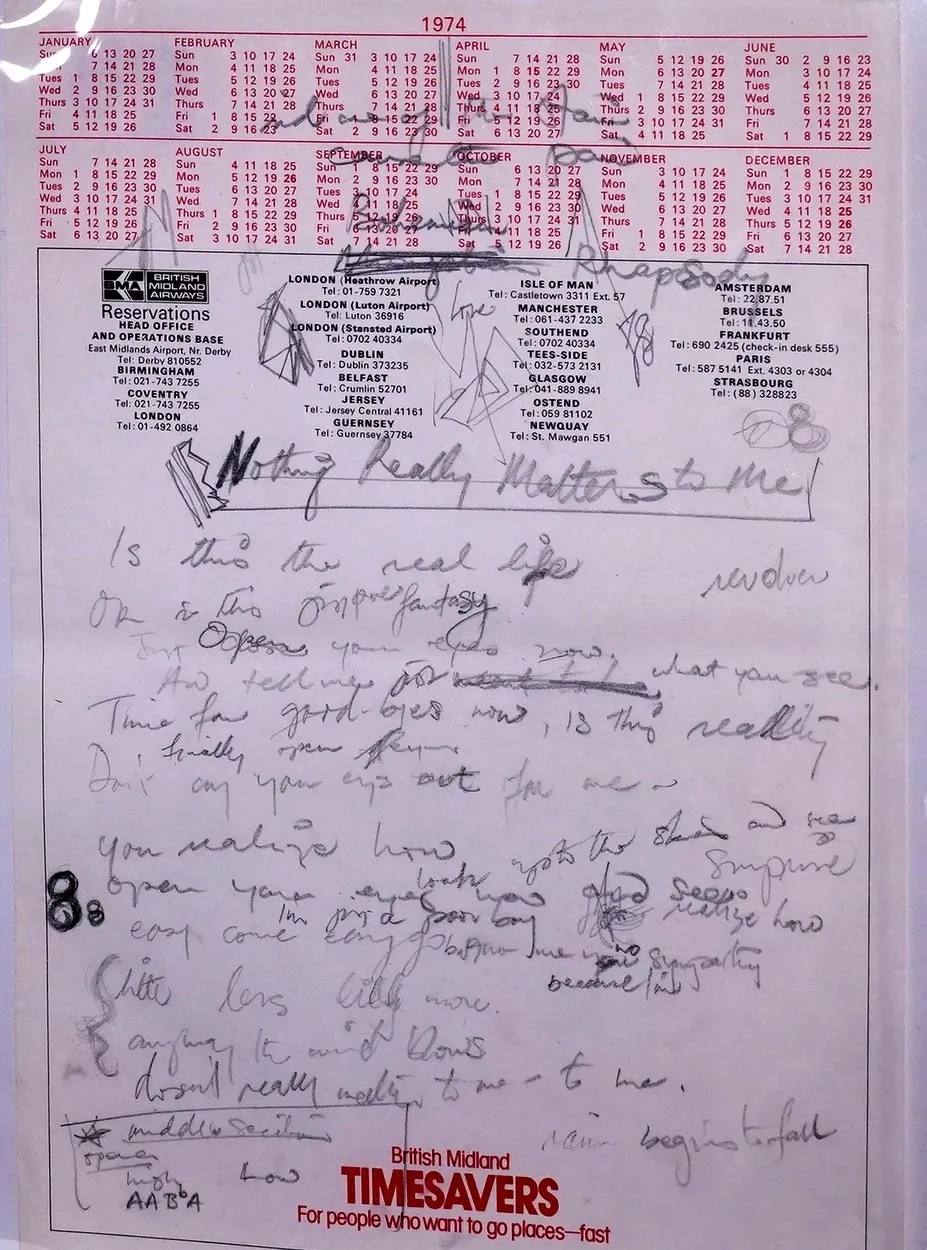 1974
JANUARY
Sun 6 13 20 27
7 14 21 28
Tues 1 8 15 22 29
Wed 2 9 16 23 30
Thurs 3 10 17 24 31
Fri 4 11 18 25
Sat 5 12 19 26
FEBRUARY
Sun 3 10 17 24
Mon 4 11 18 25
Tues 5 12 19 26
Wed 6 13 20 27
Thurs 7 14 21 28
Fri 1 8 15 22
Sat 2 9 16 23
MARCH
Sun 31 3 10 17 24
Mon 4 11 18 25
Tues 5 12 19 26
Wed 6 13 20 27
Thurs 7 14 21 28
Fri 1 8 15 22 29
Sat 2 9 16 23 30
APRIL
Sun 7 14 21 28
Mon 1 8 15 22 29
Tues 2 9 16 23 30
Wed 3 10 17 24
Thurs 4 11 18 25
Fri 5 12 19 26
Sat 6 13 20 27
MAY
Sun 5 12 19 26
Mon 6 13 20 27
Tues 7 14 21 28
Wed 1 8 15 22 29
Thurs 2 9 16 23 30
Fri 3 10 17 24 31
Sat 4 11 18 25
JUNE
Sun 30 2 9 16 23
Mon 3 10 17 24
Tues 4 11 18 25
Wed 5 12 19 26
Thurs 6 13 20 27
Fri 7 14 21 28
Sat 1 8 15 22 29
JULY
Sun 7 14 21 28
Mon 1 8 15 22 29
Tues 2 9 16 23 30
Wed 3 10 17 24 31
Thurs 4 11 18 25
Fri 5 12 19 26
Sat 6 13 20 27
AUGUST
Sun 4 11 18 25
Mon 5 12 19 26
Tues 6 13 20 27
Wed 7 14 21 28
Thurs 1 8 15 22 29
Fri 2 9 16 23 30
Sat 3 10 17 24 31
SEPTEMBER
Sun 1 8 15 22 29
Mon 2 9 16 23 30
Tues 3 10 17 24
Wed 4 11 18 25
Thurs 5 12 19 26
Fri 6 13 20 27
Sat 7 14 21 28
OCTOBER
Sun 6 13 20 27
Mon 7 14 21 28
Tues 1 8 15 22 29
Wed 2 9 16 23 30
Thurs 3 10 17 24 31
Fri 4 11 18 25
Sat 5 12 19 26
NOVEMBER
Sun 3 10 17 24
Mon 4 11 18 25
Tues 5 12 19 26
Wed 6 13 20 27
Thurs 7 14 21 28
Fri 1 8 15 22 29
Sat 2 9 16 23 30
DECEMBER
Sun 1 8 15 22 29
Mon 2 9 16 23 30
Tues 3 10 17 24 31
Wed 4 11 18 25
Thurs 5 12 19 26
Fri 6 13 20 27
Sat 7 14 21 28
Rhapsody
BMA BRITISH MIDLAND AIRWAYS
Reservations
HEAD OFFICE
AND OPERATIONS BASE
East Midlands Airport, Nr. Derby
Tel: Derby 810552
BIRMINGHAM
Tel: 021-743 7255
COVENTRY
Tel: 021-743 7255
LONDON
Tel: 01-492 0864
LONDON (Heathrow Airport)
Tel: 01-759 7321
LONDON (Luton Airport)
Tel: Luton 36916
LONDON (Stansted Airport)
Tel: 0702 40334
DUBLIN
Tel: Dublin 373235
BELFAST
Tel: Crumlin 52701
JERSEY
Tel: Jersey Central 41161
GUERNSEY
Tel: Guernsey 37784
Love
ISLE OF MAN
Tel: Castletown 3311 Ext. 57
MANCHESTER
Tel: 061-437 2233
SOUTHEND
Tel: 0702 40334
TEES-SIDE
Tel: 032-573 2131
GLASGOW
Tel: 041-889 8941
OSTEND
Tel: 059 81102
NEWQUAY
Tel: St. Mawgan 551
AMSTERDAM
Tel: 22.87.51
BRUSSELS
Tel: 11.43.50
FRANKFURT
Tel: 690 2425 (check-in desk 555)
PARIS
Tel: 587 5141 Ext. 4303 or 4304
STRASBOURG
Tel: (88) 328823
Nothing Really Matters to Me
Is this the real life
revolver
Or is this just fantasy
Just Open your eyes now.
And tell me what you see.
Time for good-byes now, is this reality
finally open
Don't cry your eyes out for me
you realize how
look up to the skies and see
surprise
open your eyes
8 8
I'm just a poor boy
realize how
easy come easy go
no sympathy
because I'm
little less little more
anyway the wind blows
doesn't really matter to me - to me.
middle section
rain begins to fall
opera
high low
AABbA
British Midland
TIMESAVERS
For people who want to go places—fast